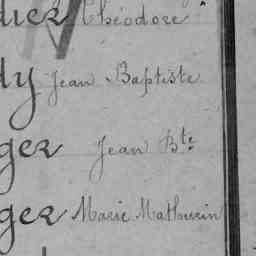 dier Théodore
dy Jean Baptiste
ger Jean Bte
ger Marie Mathurin